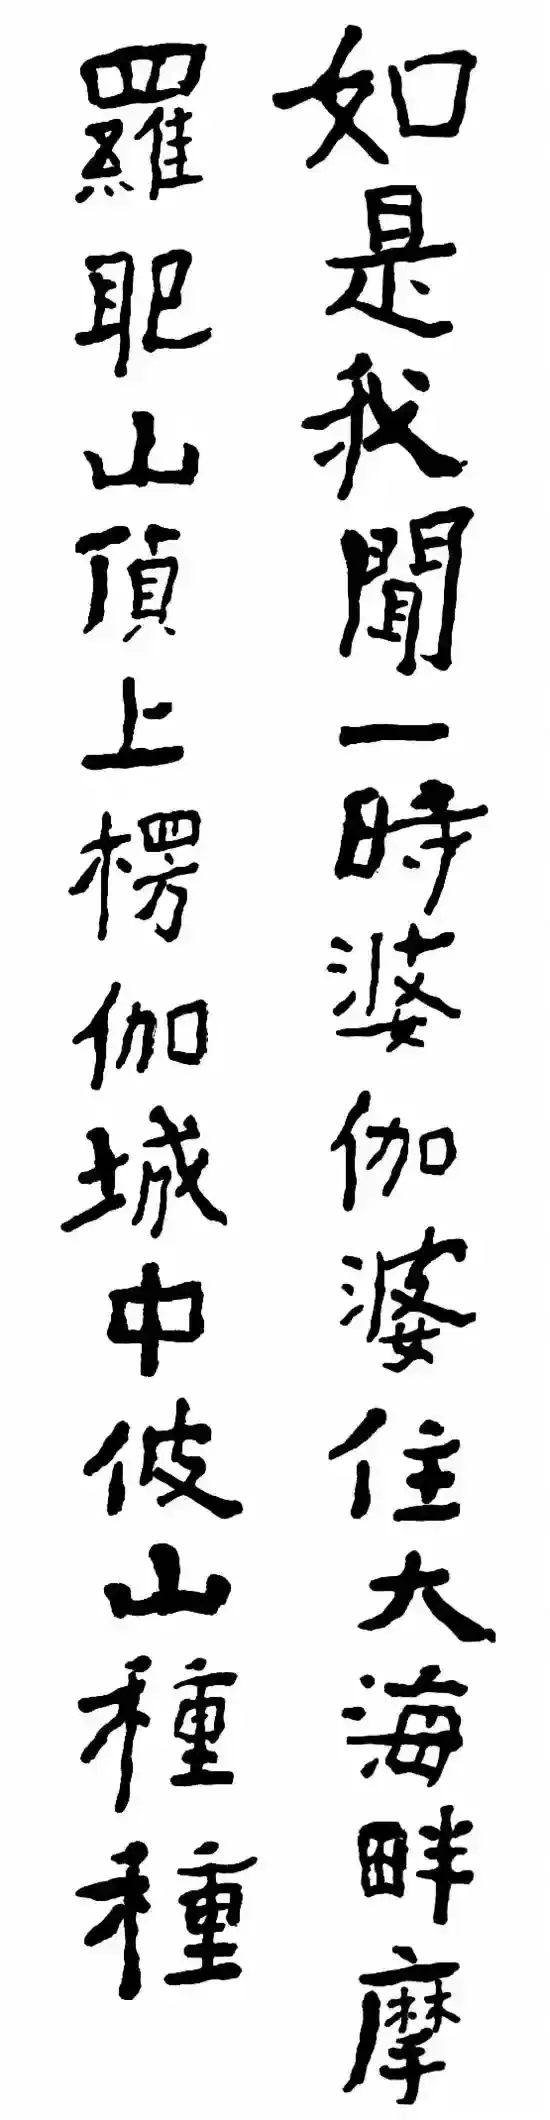 如是我聞一時婆伽婆住大海畔摩
羅耶山頂上楞伽城中彼山種種